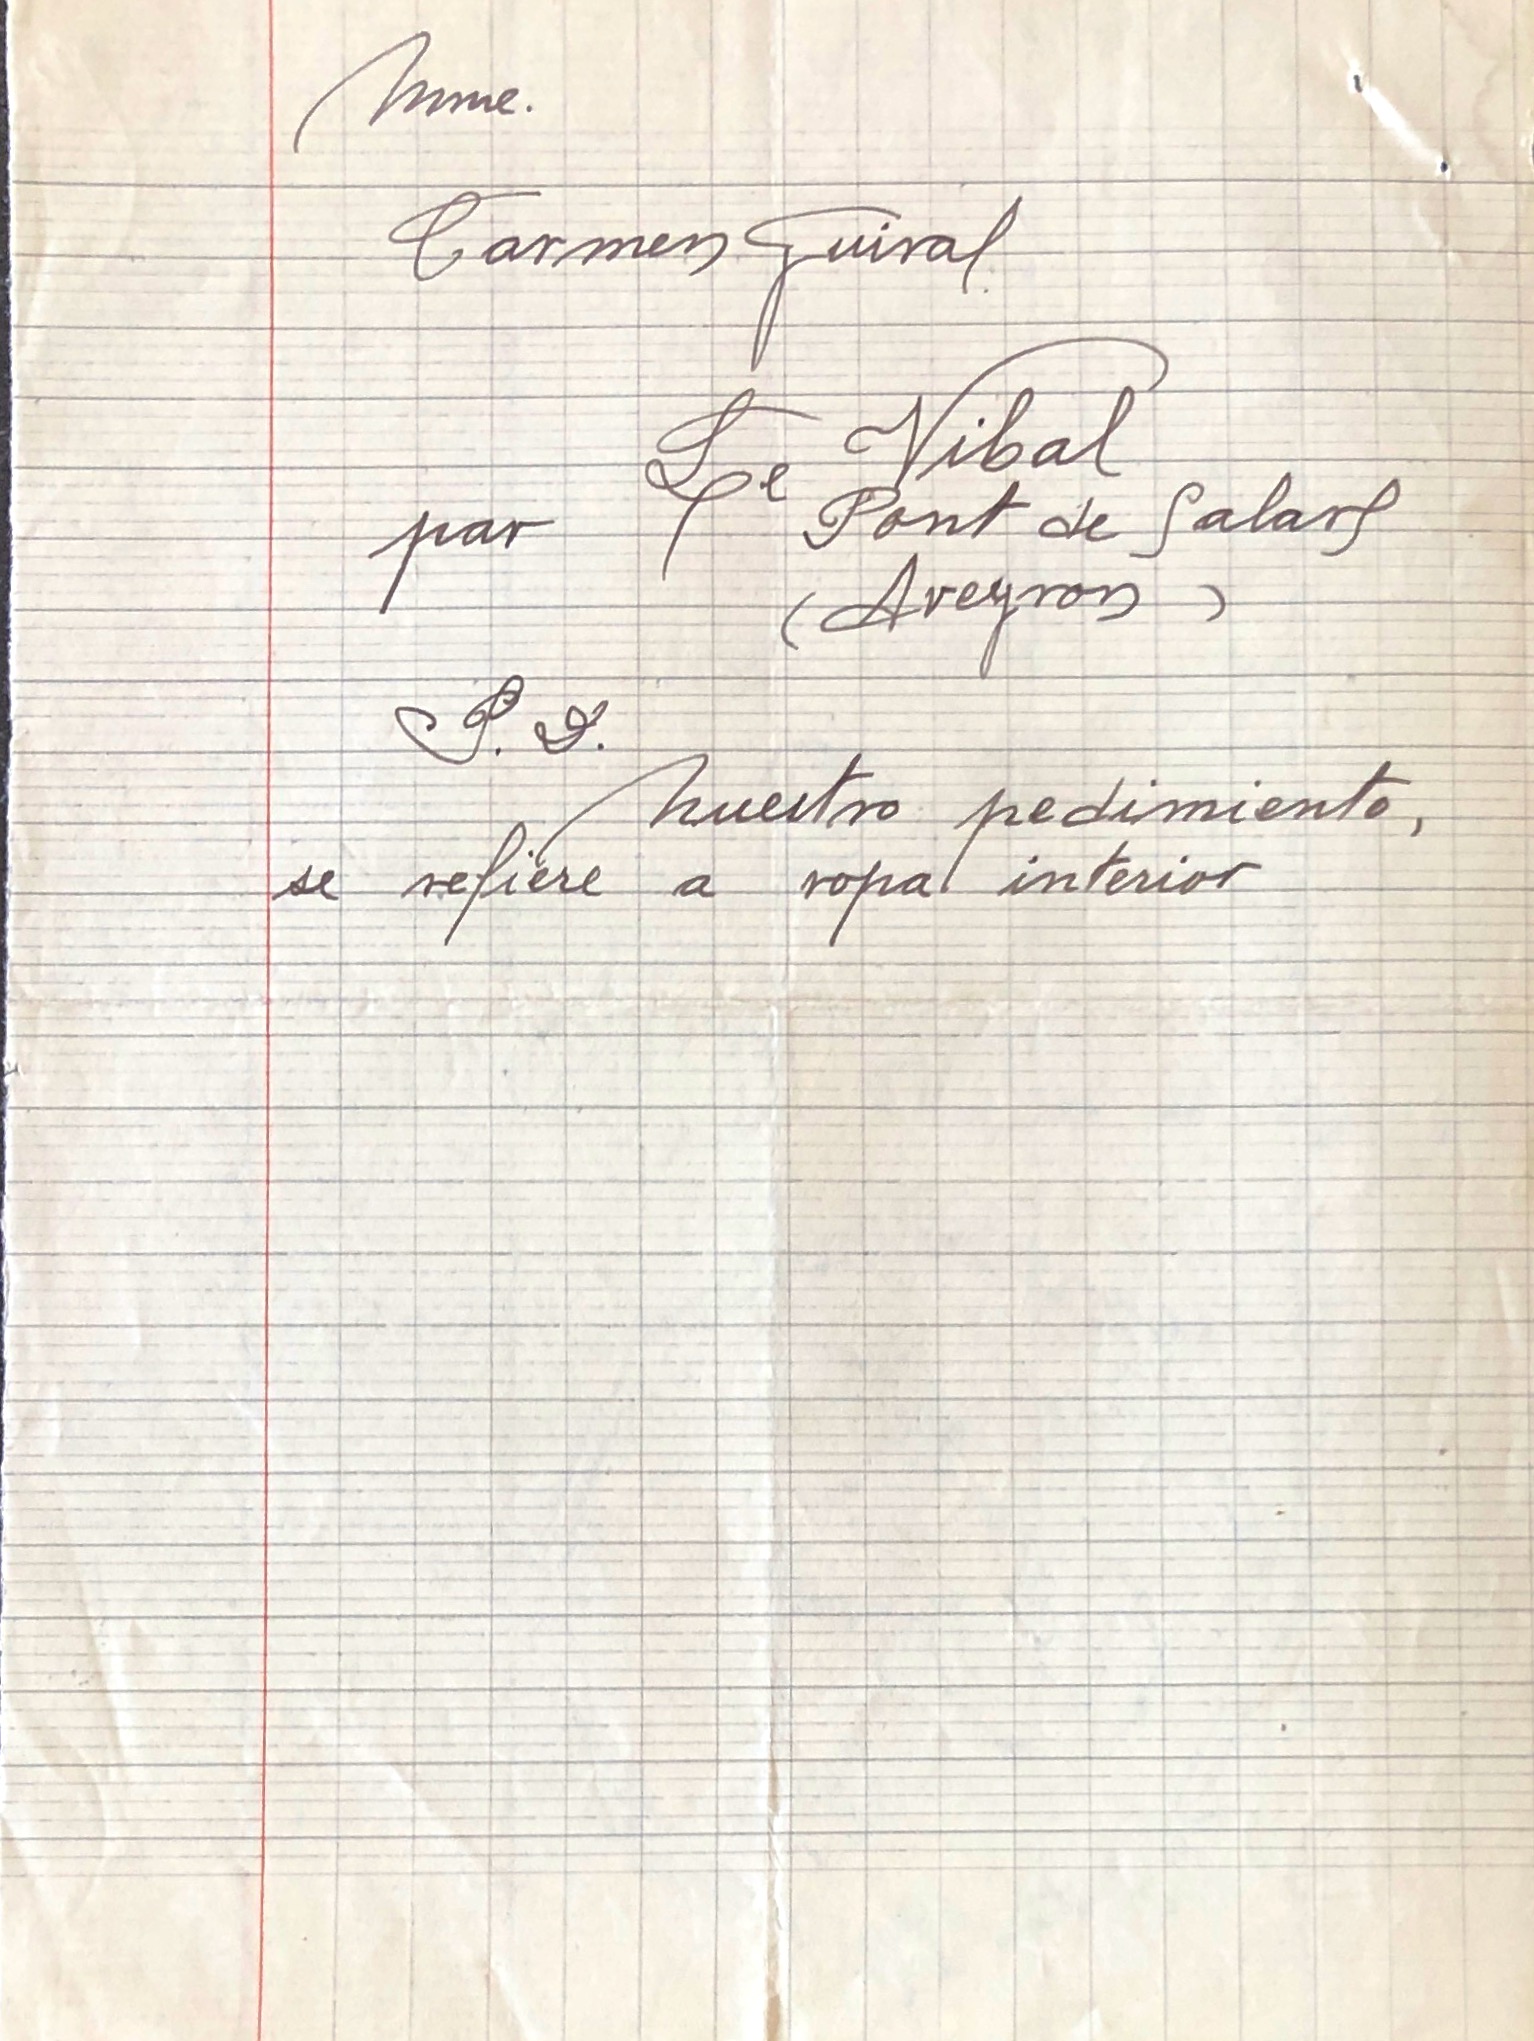 Mme.
Carmen Guiral
Le Vibal
par Pont de Salars
(Aveyron)
P. D.
Nuestro pedimiento,
se refiere a ropa interior